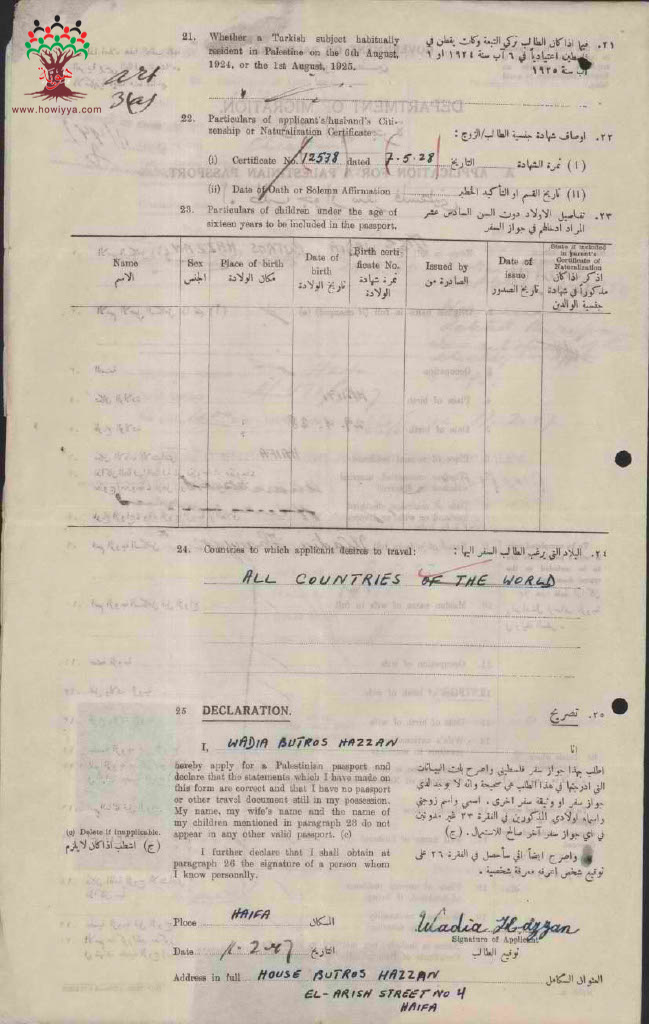 www.howiyya.com
21. Whether a Turkish subject habitually
resident in Palestine on the 6th August,
1924, or the 1st August, 1925.
٢١. فيما اذا كان الطالب تركي التبعة وكانت يقطن في
فلسطين اعتيادياً في ٦ آب سنة ١٩٢٤ او ١
آب سنة ١٩٢٥
22. Particulars of applicant's/husband's Citi-
zenship or Naturalization Certificate:
٢٢. اوصاف شهادة جنسية الطالب/الزوج:
(i) Certificate No. 12538 dated 7.5.28 التاريخ (i) نمرة الشهادة
(ii) Date of Oath or Solemn Affirmation (ii) تاريخ القسم او التأكيد الخطير
23. Particulars of children under the age of
sixteen years to be included in the passport.
٢٣. تفاصيل الاولاد دون السن السادس عشر
المراد ادخالهم في جواز السفر
Name
الاسم
Sex
الجنس
Place of birth
مكان الولادة
Date of
birth
تاريخ الولادة
Birth certi-
ficate No.
نمرة شهادة
الولادة
Issued by
الصادرة من
Date of
issue
تاريخ الصدور
State if included
in parent's
Certificate of
Naturalization
اذكر اذا كان
مذكوراً في شهادة
جنسية الوالدين
24. Countries to which applicant desires to travel:
٢٤. البلاد التي يرغب الطالب السفر اليها:
ALL COUNTRIES OF THE WORLD
25 DECLARATION.
٢٥. تصريح
I, WADIA BUTROS HAZZAN انا
hereby apply for a Palestinian passport and
declare that the statements which I have made on
this form are correct and that I have no passport
or other travel document still in my possession.
My name, my wife's name and the name of
my children mentioned in paragraph 23 do not
appear in any other valid passport. (c)
I further declare that I shall obtain at
paragraph 26 the signature of a person whom
I know personally.
اطلب بهذا جواز سفر فلسطيني واصرح بان البيانات
التي ادرجتها في هذا الطلب هي صحيحة وانه لا يوجد لدي
جواز سفر او وثيقة سفر اخرى. اسمي واسم زوجتي
واسماء اولادي المذكورين في الفقرة ٢٣ غير مدونين
في اي جواز سفر آخر صالح للاستعمال. (ج)
واصرح ايضاً اني سأحصل في الفقرة ٢٦ على
توقيع شخص اعرفه معرفة شخصية.
(c) Delete if inapplicable.
(ج) اشطب اذا كان لا يلزم
Place HAIFA المكان
Wadia Hazzan
Signature of Applicant
توقيع الطالب
Date التاريخ
Address in full HOUSE BUTROS HAZZAN العنوان الكامل
EL-ARISH STREET No 4
HAIFA